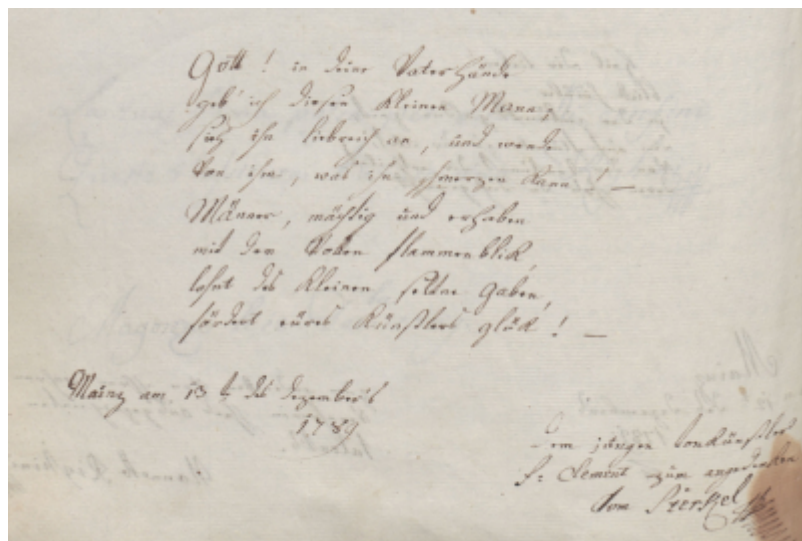 Gott! in deine Vaterhände
geb' ich diesen kleinen Mann;
sieh ihn liebreich an, und wende
von ihm, was ihn schmerzen kann! —
Männer, mächtig und erhaben
mit dem hohen flammenblick,
lohnt des kleinen seltne Gaben,
fördert eures Künstlers glük! —
Mainz am 13 t des Dezember's
1789
Dem jungen Tonkünstler
F: Clement zum angedenken
vom Sterkel